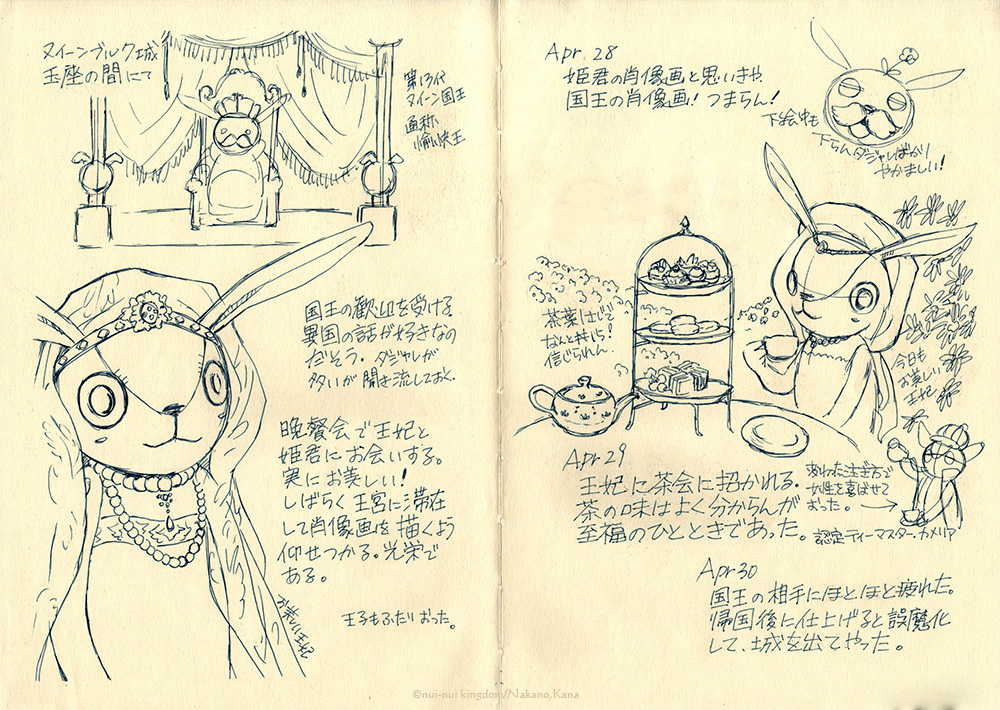 ヌイーンブルク城
玉座の間にて
第13代
ヌイーン国王
通称
愉快王
国王の歓迎を受ける
異国の話が好きなの
だそう。ダジャレが
多いが聞き流しておく。
晩餐会で王妃と
姫君にお会いする。
実にお美しい!
しばらく王宮に滞在
して肖像画を描くよう
仰せつかる。光栄で
ある。
お美しい王妃
王子もふたりおった。
Apr. 28
姫君の肖像画と思いきや
国王の肖像画!つまらん!
下絵中も
下らんダジャレばかり
やかましい!
茶葉はじと
なんと丼いち!
信じられん。
今日も
お美しい
王妃
Apr 29
王妃に茶会に招かれる。
茶の味はよく分からんが
至福のひとときであった。
変わった注ぎ方で
女性を喜ばせて
おった。→
認定ティーマスター、カメリア
Apr 30
国王の相手にほとほと疲れた。
帰国後に仕上げると誤魔化
して、城を出てやった。
©nui-nui kingdom/Nakano,Kana